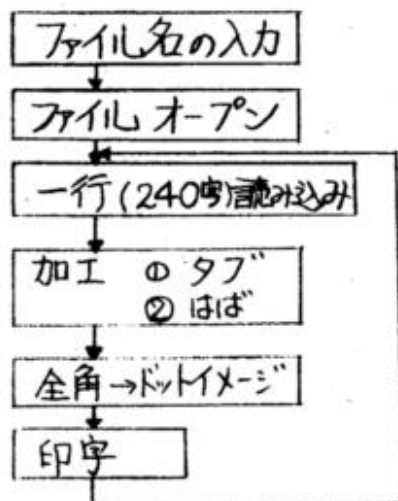 ファイル名の入力
ファイル オープン
一行(240字)読み込み
加工 ① タブ
② はば
全角→ドットイメージ
印字